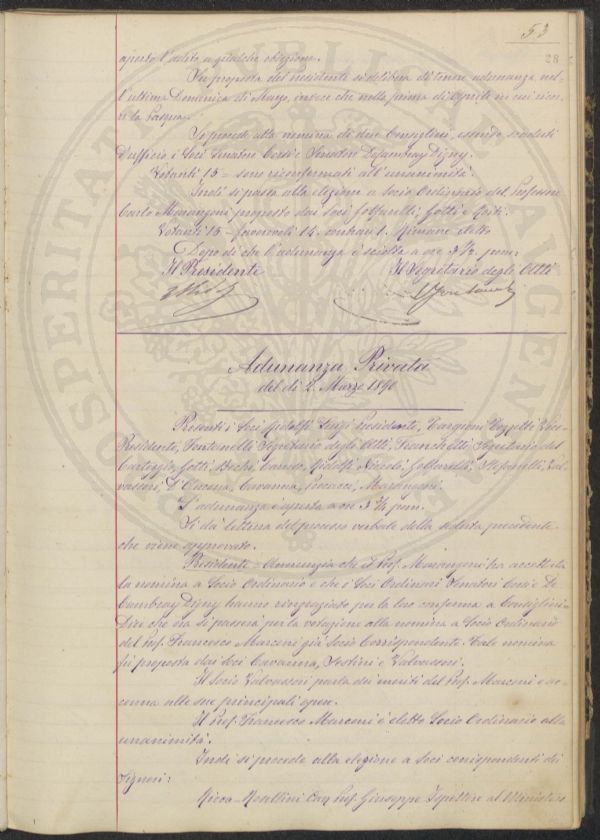 53
28
aperto l'adito a qualche obiezione.
Su proposta del Presidente si delibera di tenere adunanza nel-
l'ultima Domenica di Marzo, invece che nella prima di Aprile in cui ricor-
re la Pasqua.
Si procede alla nomina di due Consiglieri, essendo scaduti
d'ufficio i Soci Senatori Corsi e Senatore Decambray Digny.
Votanti 15 = sono riconfermati all'unanimità.
Indi si passa alla elezione a Socio Ordinario del Professore
Carlo Marangoni proposto dai Soci Golfarelli, Gotti e Roiti.
Votanti 15 - favorevoli 14. contrari 1. Rimane eletto
Dopo di che l'adunanza è sciolta a ore 3 1/2 pom:
Il Presidente
Il Segretario degli Atti
Adunanza Privata
del dì 2. Marzo 1890
Presenti i Soci Ridolfi Luigi Presidente, Targioni Tozzetti Vice-
Presidente, Fontanelli Segretario degli Atti, Franchetti Segretario del
Carteggio, Gotti, Bechi, Caruso, Ridolfi Niccolò, Golfarelli, Stefanelli, Val-
vassori, D'Ancona, Cavanna, Pucacci, Marangoni.
L'adunanza è aperta a ore 3 1/4 pom.
Si dà lettura del processo verbale della seduta precedente
che viene approvato.
Presidente = Annunzia che il Prof. Marangoni ha accettata
la nomina a Socio Ordinario e che i Soci Ordinari Senatori Corsi e De
Cambray Digny hanno ringraziato per la loro conferma a Consiglieri =
Dice che ora si passerà per la votazione alla nomina a Socio Ordinario
del Prof. Francesco Marconi già Socio Corrispondente. Tale nomina
fu proposta dai Soci Cavanna, Sestini e Valvassori.
Il Socio Valvassori parla dei meriti del Prof. Marconi e ac-
cenna alle sue principali opere.
Il Prof. Francesco Marconi è eletto Socio Ordinario alla
unanimità.
Indi si procede alla elezione a Soci corrispondenti dei
Signori:
Ricca-Rosellini Cav. Prof. Giuseppe Ispettore al Ministero